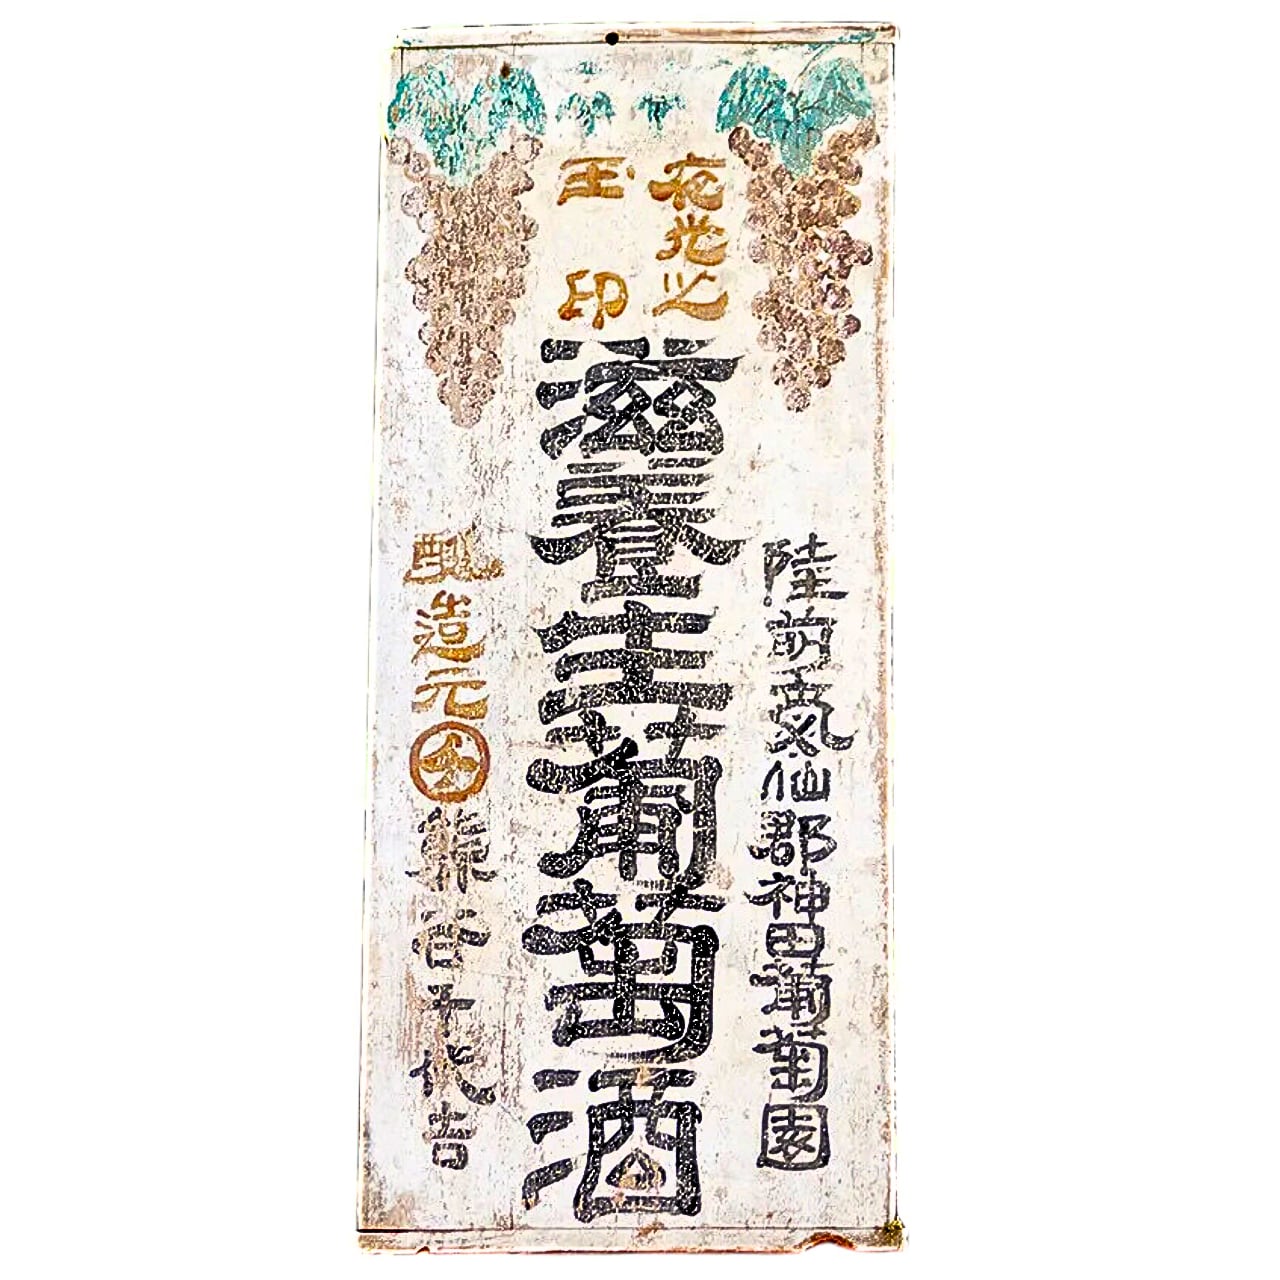 夜光之
玉印
滋養生葡萄酒
陸前気仙郡神田葡萄園
醸造元
熊谷千代吉